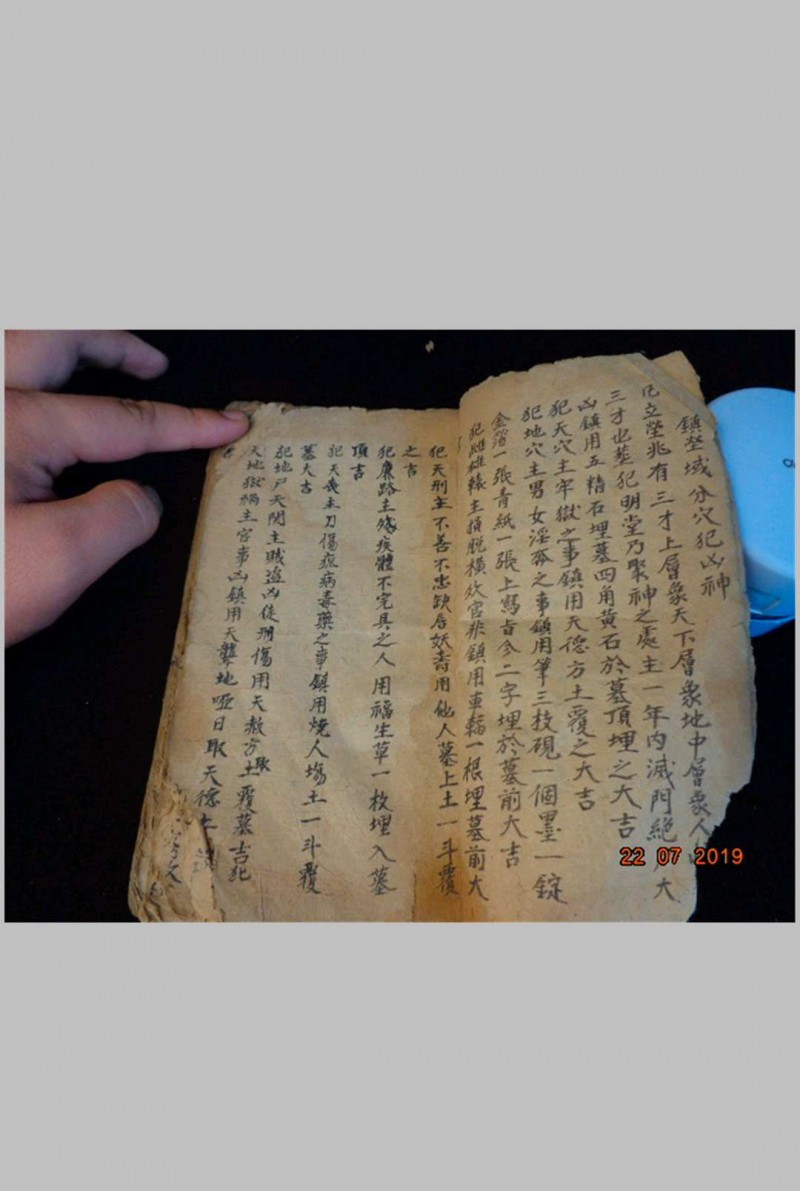 鎮塋域分穴犯凶神
凡立塋兆有三才上層象天下層象地中層象人
三才也塟犯明堂乃聚神之處主一年內滅門絕大
凶鎮用五精石埋墓四角黃石於墓頂埋之大吉
犯天穴主牢獄之事鎮用天德方土覆之大吉
犯地穴主男女淫孤之事鎮用筆三枝硯一個墨一錠
金箔一張青紙一張上寫合二字埋於墓前大吉
犯轅主脫橫官非鎮用車輻一根埋墓前大
犯天刑主不善不忠缺唇妖用他人墓上土一斗覆
之吉
犯廉路主殘疾體不完具之人用福生草一枚埋入墓
頂吉
犯天喪主刀傷痕病毒藥之事鎮用燒人塲土一斗覆
墓大吉
犯地尸天關主賊盗凶徒刑傷用天赦方土覆墓吉犯
天地獄禍主官事凶鎮用天聾地啞日取天德土
22 07 2019